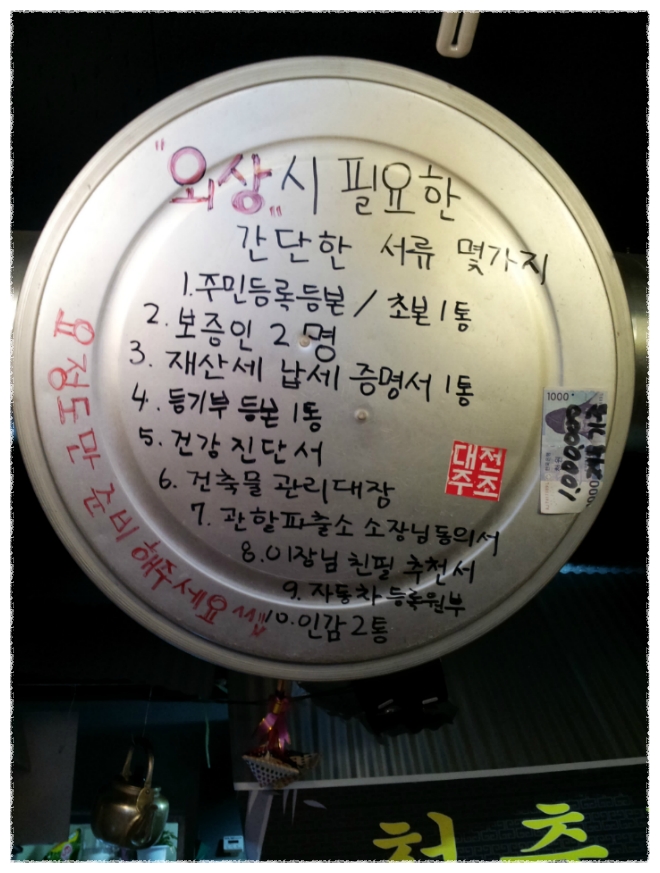 "외상" 시 필요한
간단한 서류 몇가지
1. 주민등록등본 / 초본 1통
2. 보증인 2명
3. 재산세 납세 증명서 1통
4. 등기부 등본 1통
5. 건강 진단서
6. 건축물 관리대장
7. 관할파출소 소장님동의서
8. 이장님 친필 추천서
9. 자동차 등록원부
10. 인감 2통
요정도만 준비해주세요
대전
주조
1000